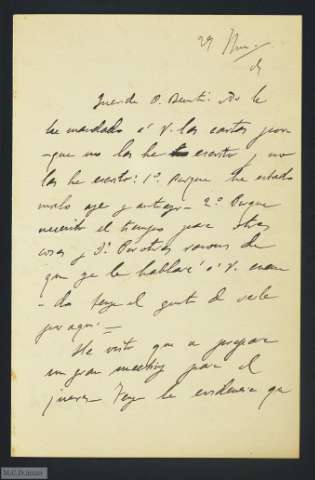 29
Querido D. Benito: No le
he mandado á V. las cartas por-
-que no las he escrito; y no
las he escrito: 1º. Porque he estado
malo ayer y antier. 2º. Porque
necesito el tiempo para otras
cosas y 3º. Por otras razones de
que ya le hablaré á V. cuan-
-do tenga el gusto de verle
por aquí. —
He visto que se prepara
un gran meeting para el
jueves. Tengo la evidencia que
M.C.D. 2022